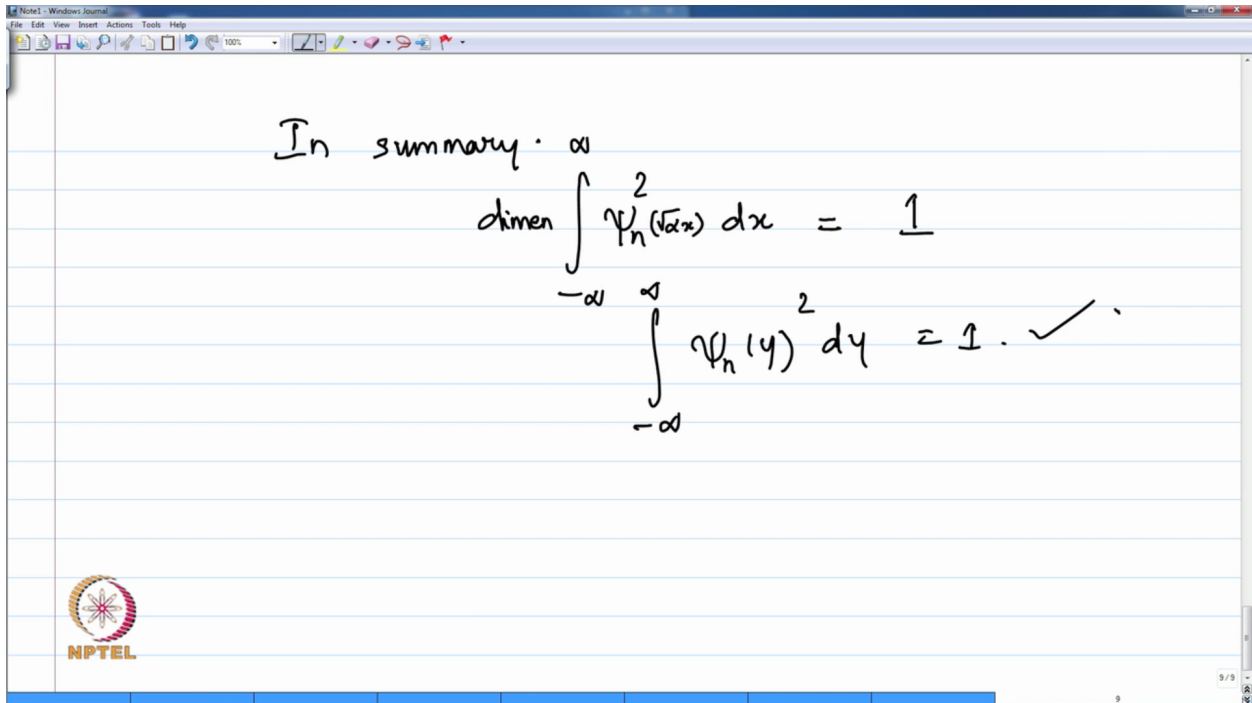 Note1 - Windows Journal
File Edit View Insert Actions Tools Help
100%
In summary.
dimen ∫_{-∞}^{∞} ψ_n^2(√αx) dx = 1
∫_{-∞}^{∞} ψ_n(y)^2 dy = 1. ✓
NPTEL
9/9
9